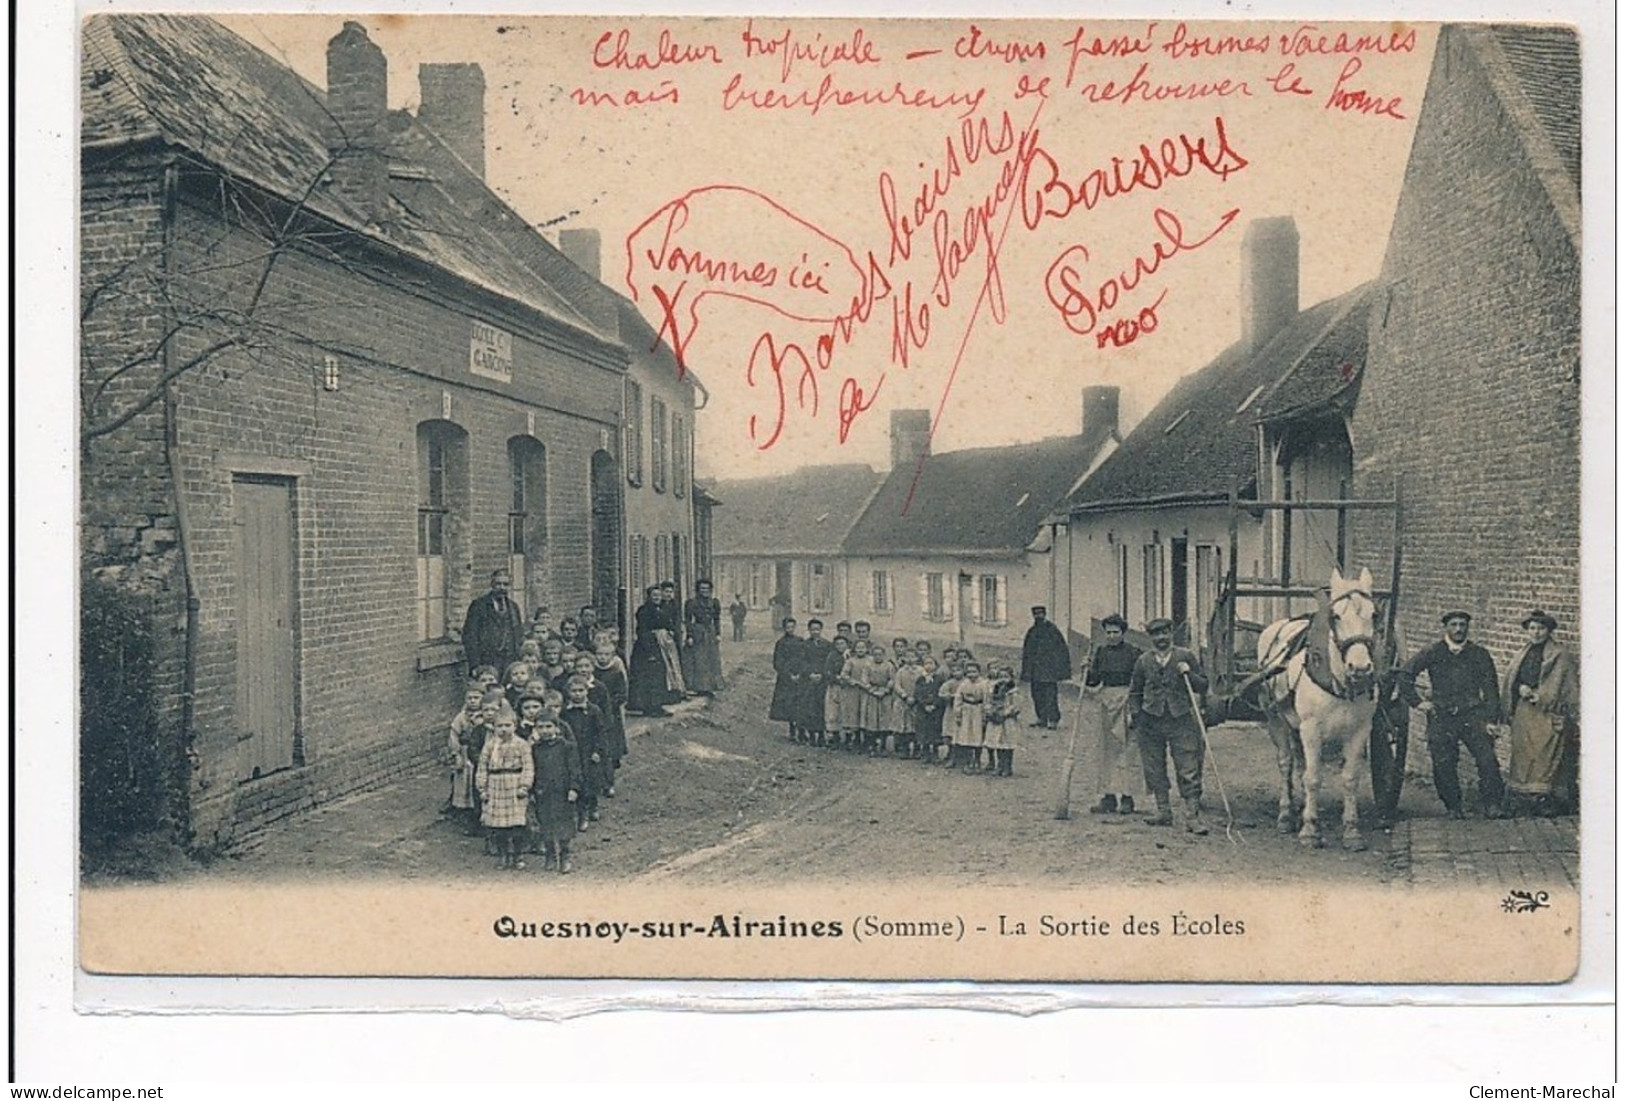 Chaleur tropicale – Avons passé bonnes vacances
mais bienheureux de retrouver le home
Sommes ici
X
Bons baisers
de
Baisers
Paul
ECOLE
GARCONS
Quesnoy-sur-Airaines (Somme) - La Sortie des Écoles
delcampe.net
Clement-Marechal